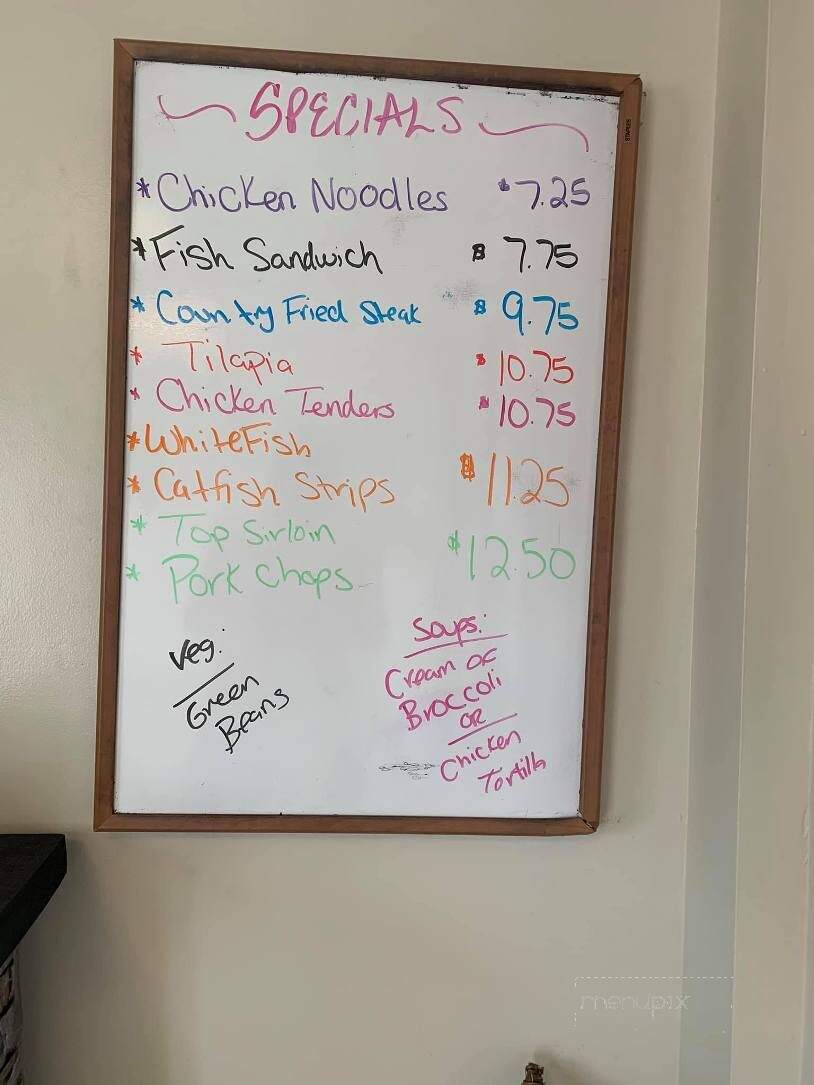 SPECIALS
* Chicken Noodles $7.25
* Fish Sandwich $ 7.75
* Country Fried Steak $ 9.75
* Tilapia $ 10.75
* Chicken Tenders $ 10.75
* WhiteFish
* Catfish Strips $11.25
* Top Sirloin
* Pork Chops $12.50
Veg.:
Green
Beans
Soups:
Cream OF
Broccoli
OR
Chicken
Tortilla
STAPLES
menupix